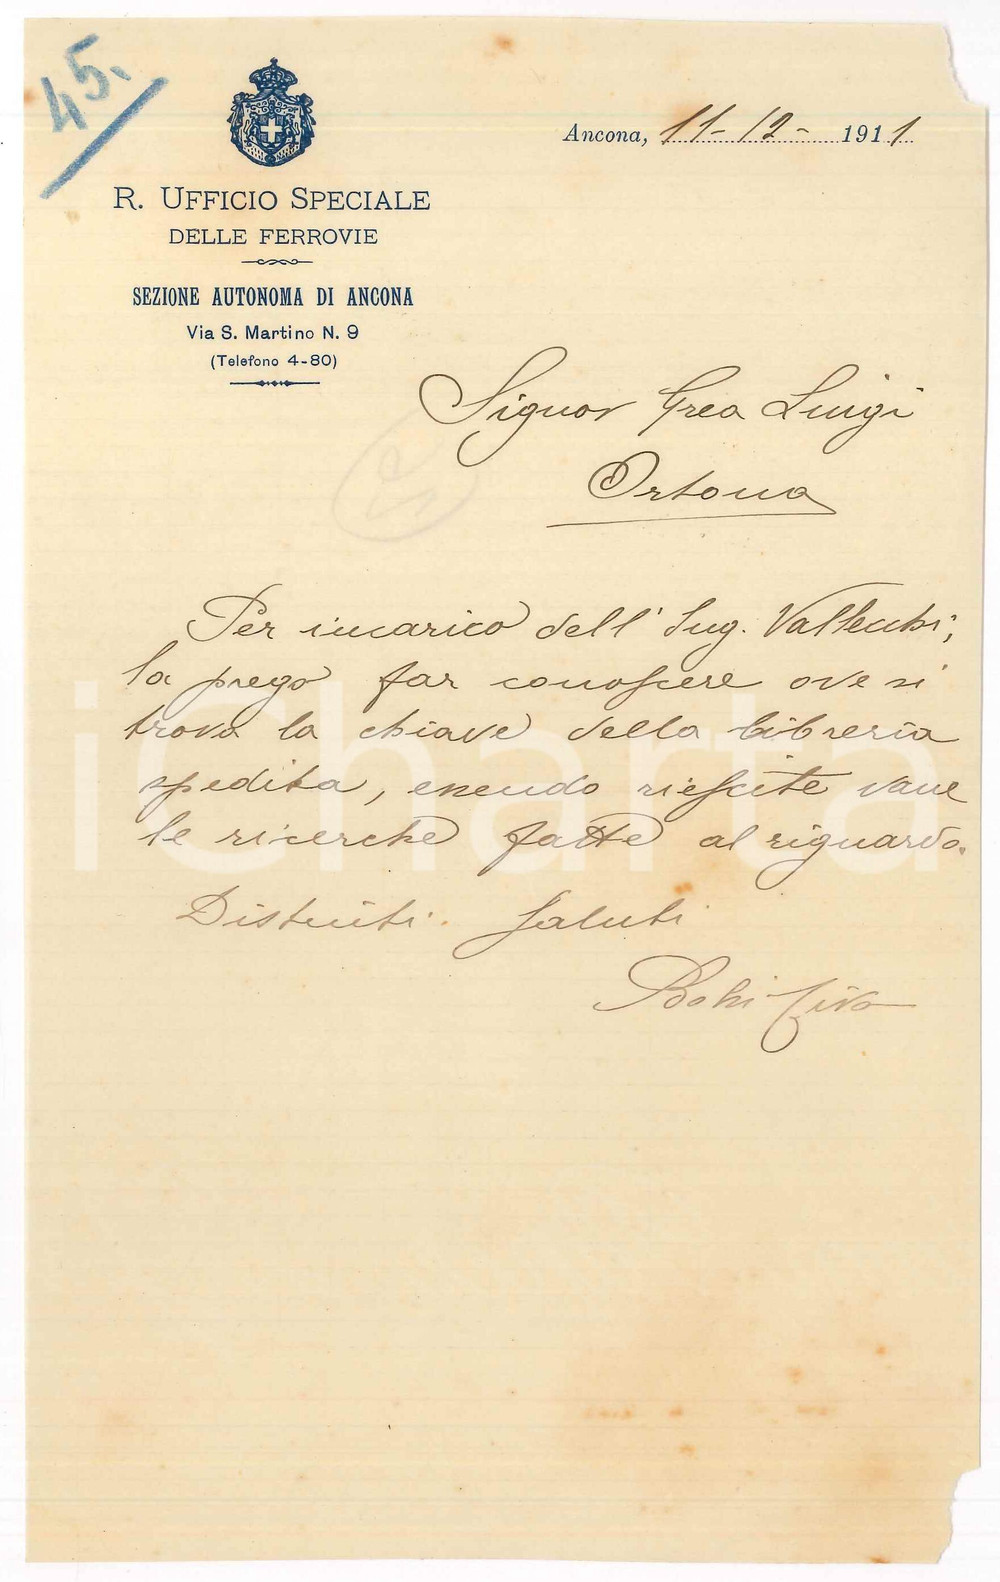 45.
Ancona, 11-12- 1911
R. UFFICIO SPECIALE
DELLE FERROVIE
SEZIONE AUTONOMA DI ANCONA
Via S. Martino N. 9
(Telefono 4-80)
Signor Grea Luigi
Ortona
Per incarico dell' Ing. Vallecchi,
la prego far conoscere ove si
trova la chiave della libreria
spedita, essendo riescite vane
le ricerche fatte al riguardo.
Distinti saluti
iCharta